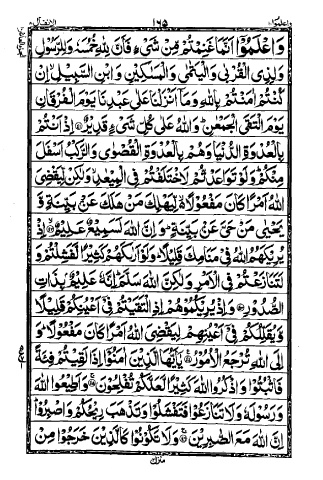 واعلموا ١٦٥ الانفال
وَاعْلَمُوْٓا اَنَّمَا غَنِمْتُمْ مِّنْ شَيْءٍ فَاَنَّ لِلّٰهِ خُمُسَهٗ وَلِلرَّسُوْلِ
وَلِذِى الْقُرْبٰى وَالْيَتٰمٰى وَالْمَسٰكِيْنِ وَابْنِ السَّبِيْلِ اِنْ
كُنْتُمْ اٰمَنْتُمْ بِاللّٰهِ وَمَآ اَنْزَلْنَا عَلٰى عَبْدِنَا يَوْمَ الْفُرْقَانِ
يَوْمَ الْتَقَى الْجَمْعٰنِ ؕ وَاللّٰهُ عَلٰى كُلِّ شَيْءٍ قَدِيْرٌ ۝ اِذْ اَنْتُمْ
بِالْعُدْوَةِ الدُّنْيَا وَهُمْ بِالْعُدْوَةِ الْقُصْوٰى وَالرَّكْبُ اَسْفَلَ
مِنْكُمْ ؕ وَلَوْ تَوَاعَدْتُّمْ لَاخْتَلَفْتُمْ فِى الْمِيْعٰدِ ۙ وَلٰكِنْ لِّيَقْضِىَ
اللّٰهُ اَمْرًا كَانَ مَفْعُوْلًا ۙ لِّيَهْلِكَ مَنْ هَلَكَ عَنْۢ بَيِّنَةٍ وَّ
يَحْيٰى مَنْ حَيَّ عَنْۢ بَيِّنَةٍ ؕ وَاِنَّ اللّٰهَ لَسَمِيْعٌ عَلِيْمٌ ۝ اِذْ
يُرِيْكَهُمُ اللّٰهُ فِيْ مَنَامِكَ قَلِيْلًا ؕ وَلَوْ اَرٰىكَهُمْ كَثِيْرًا لَّفَشِلْتُمْ وَ
لَتَنَازَعْتُمْ فِى الْاَمْرِ وَلٰكِنَّ اللّٰهَ سَلَّمَ ؕ اِنَّهٗ عَلِيْمٌۢ بِذَاتِ
الصُّدُوْرِ ۝ وَاِذْ يُرِيْكُمُوْهُمْ اِذِ الْتَقَيْتُمْ فِيْٓ اَعْيُنِكُمْ قَلِيْلًا
وَّيُقَلِّلُكُمْ فِيْٓ اَعْيُنِهِمْ لِيَقْضِىَ اللّٰهُ اَمْرًا كَانَ مَفْعُوْلًا ؕ وَ
اِلَى اللّٰهِ تُرْجَعُ الْاُمُوْرُ ۝ يٰٓاَيُّهَا الَّذِيْنَ اٰمَنُوْٓا اِذَا لَقِيْتُمْ فِئَةً
فَاثْبُتُوْا وَاذْكُرُوا اللّٰهَ كَثِيْرًا لَّعَلَّكُمْ تُفْلِحُوْنَ ۝ وَاَطِيْعُوا اللّٰهَ
وَرَسُوْلَهٗ وَلَا تَنَازَعُوْا فَتَفْشَلُوْا وَتَذْهَبَ رِيْحُكُمْ وَاصْبِرُوْا ؕ
اِنَّ اللّٰهَ مَعَ الصّٰبِرِيْنَ ۝ وَلَا تَكُوْنُوْا كَالَّذِيْنَ خَرَجُوْا مِنْ